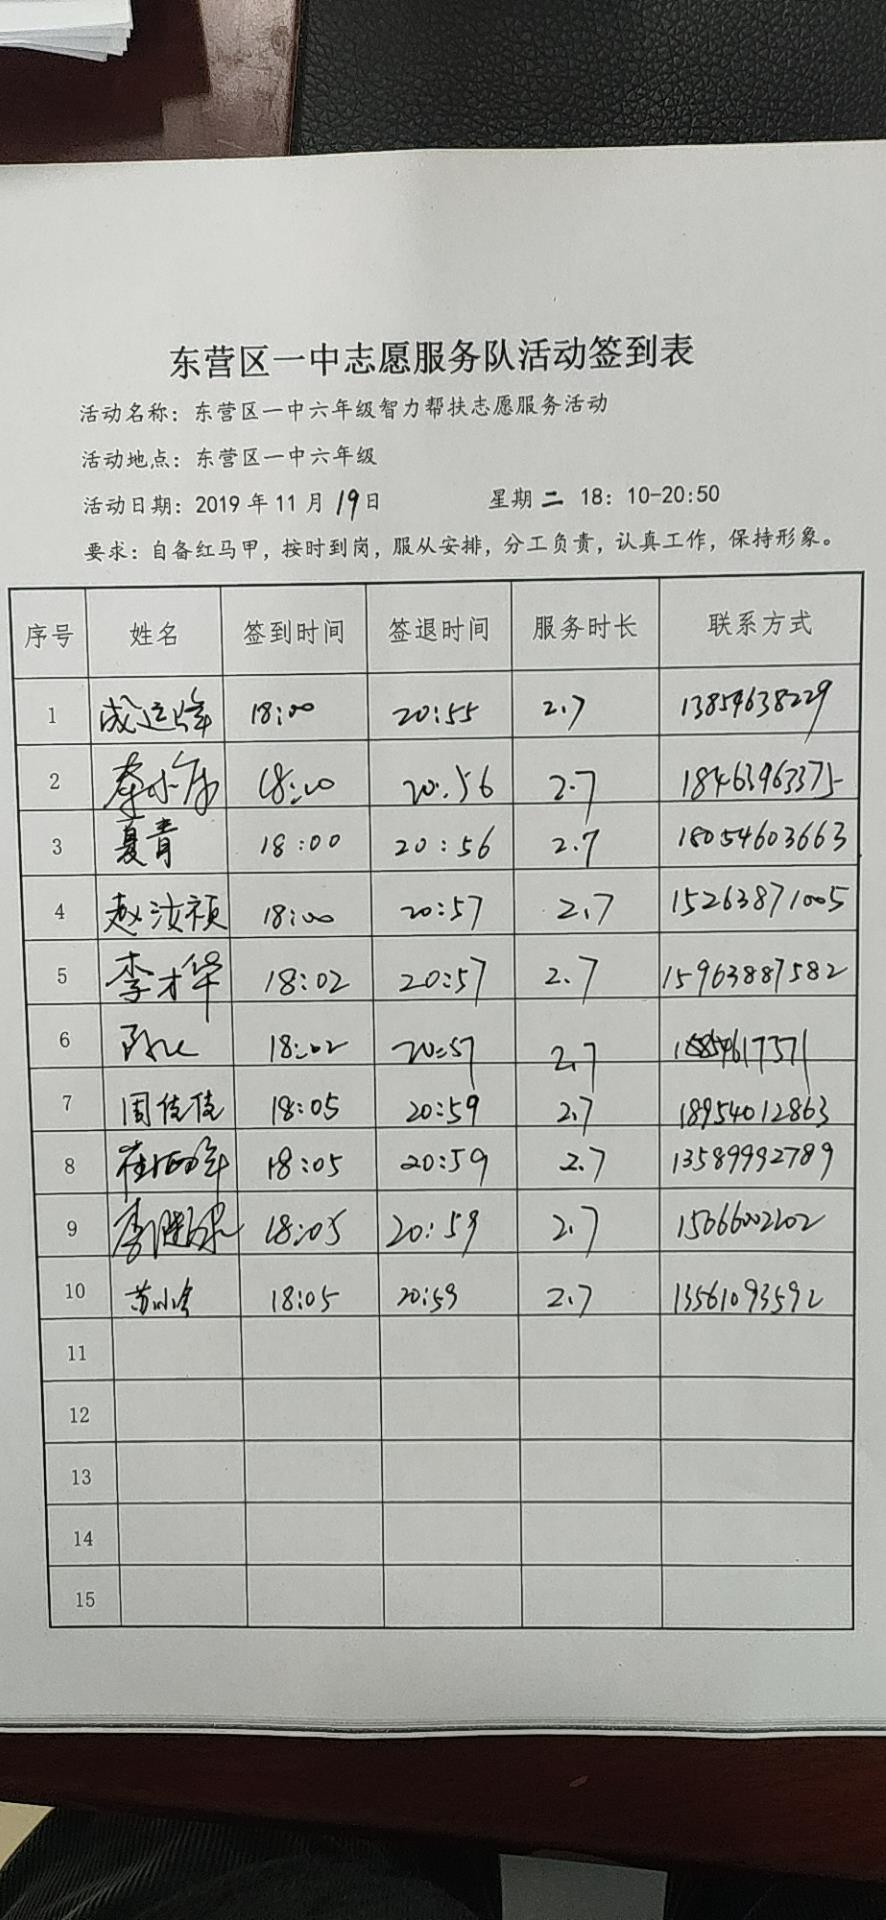 东营区一中志愿服务队活动签到表
活动名称：东营区一中六年级智力帮扶志愿服务活动
活动地点：东营区一中六年级
活动日期：2019 年 11 月 19 日 星期 二 18：10-20:50
要求：自备红马甲，按时到岗，服从安排，分工负责，认真工作，保持形象。
序号 姓名 签到时间 签退时间 服务时长 联系方式
1 18:00 20:55 2.7 13854638229
2 20:56 2.7 18463963375
3 夏青 18:00 20:56 2.7 18054603663
4 赵汝祯 18:00 20:57 2.7 15263871005
5 李才华 18:02 20:57 2.7 15963887582
6 18:02 20:57 2.7
7 周佳佳 18:05 20:59 2.7 18954012863
8 18:05 20:59 2.7 13589992789
9 18:05 20:59 2.7 15066002202
10 18:05 20:59 2.7 13561093592
11
12
13
14
15